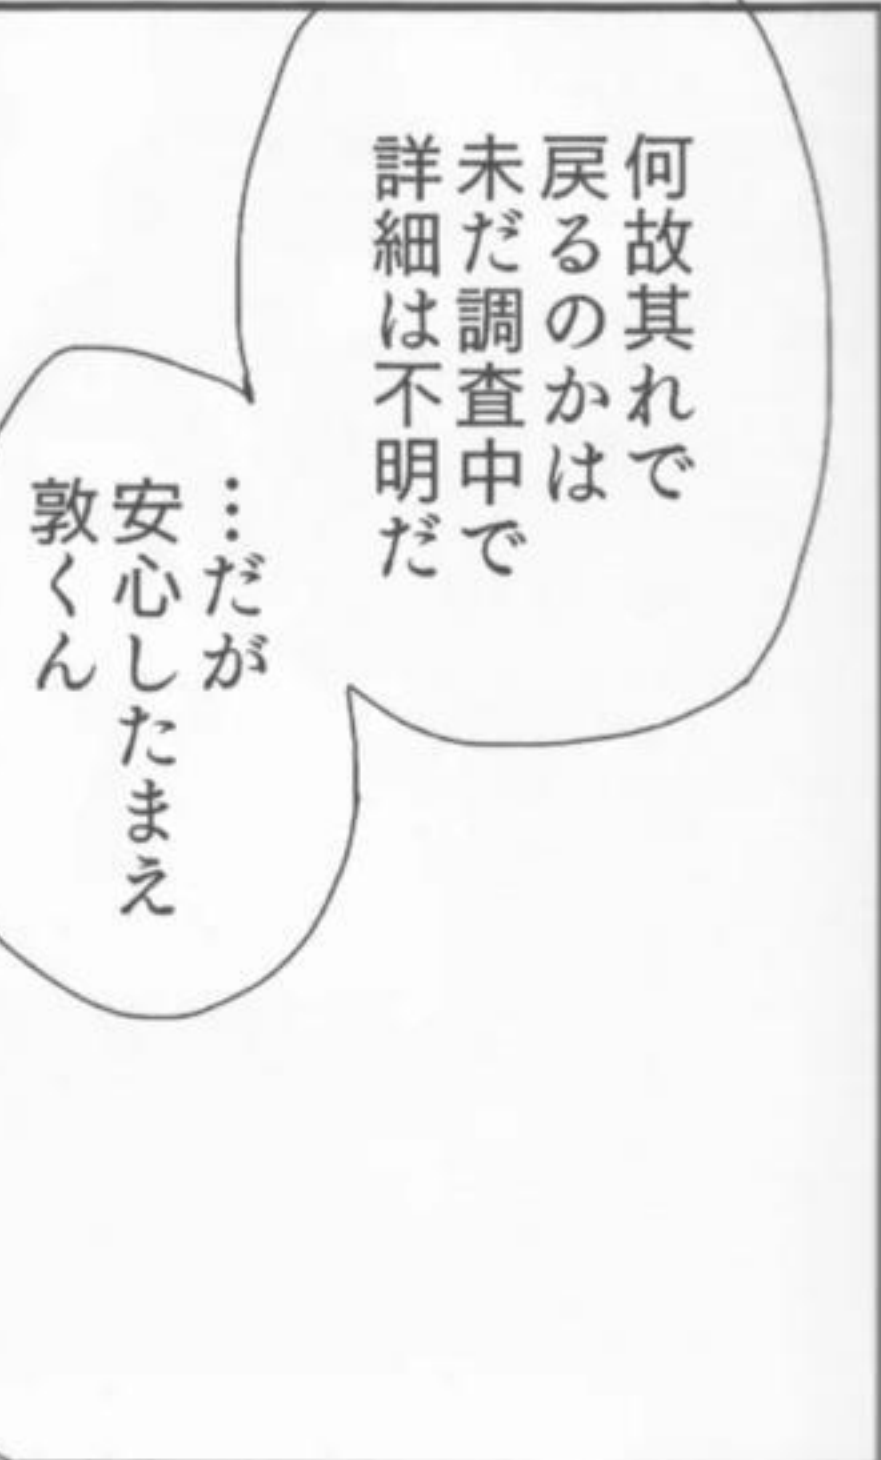 何故其れで
戻るのかは
未だ調査中で
詳細は不明だ
…だが
安心したまえ
敦くん